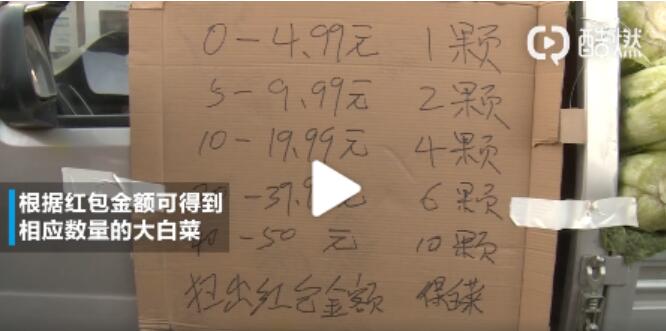 酷燃
0-4.99元 1颗
5-9.99元 2颗
10-19.99元 4颗
元 6颗
-50 元 10颗
出红包金额 白菜
根据红包金额可得到
相应数量的大白菜